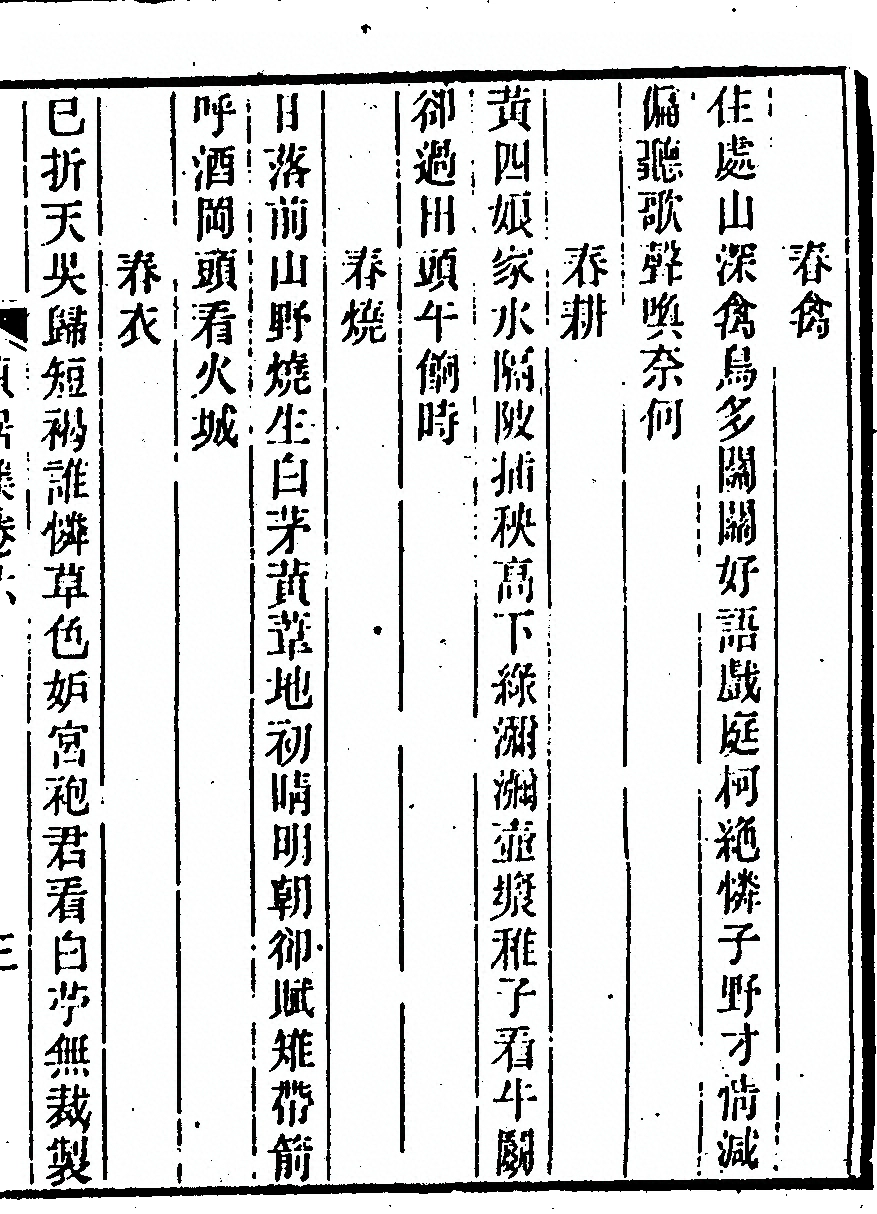 春禽
住處山深禽鳥多關關好語戲庭柯絶憐子野才情減
偏聽歌聲喚奈何
春耕
黃四娘家水隔陂插秧高下綠瀰瀰壺漿稚子看牛鬭
卻過田頭午餉時
春燒
日落前山野燒生白茅黃葦地初晴明朝卻賦雉帶箭
呼酒岡頭看火城
春衣
已折天吳歸短褐誰憐草色妒宮袍君看白苧無裁製
三